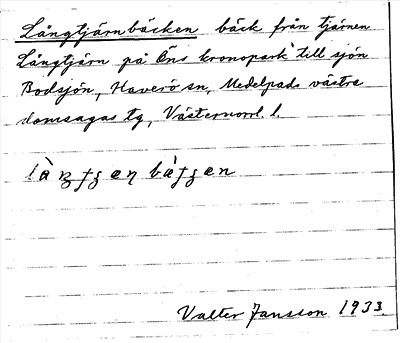 Långtjärnbäcken bäck från tjärnen
Långtjärn på Öns kronopark till sjön
Bodsjön, Haverö sn, Medelpads västra
domsagas tg, Västernorrl. l.
Valter Jansson 1933.